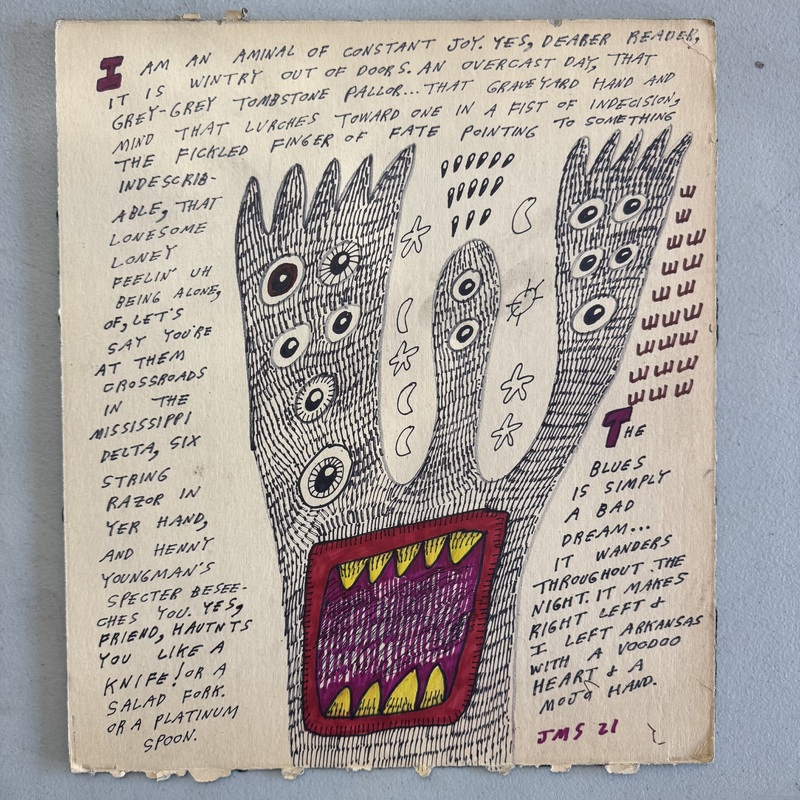 I AM AN AMINAL OF CONSTANT JOY. YES, DEARER READER,
IT IS WINTRY OUT OF DOORS. AN OVERCAST DAY, THAT
GREY-GREY TOMBSTONE PALLOR... THAT GRAVEYARD HAND AND
MIND THAT LURCHES TOWARD ONE IN A FIST OF INDECISION,
THE FICKLED FINGER OF FATE POINTING TO SOMETHING
INDESCRIB-
ABLE, THAT
LONESOME
LONEY
FEELIN' UH
BEING ALONE,
OF, LET'S
SAY YOU'RE
AT THEM
CROSSROADS
IN THE
MISSISSIPPI
DELTA, SIX
STRING
RAZOR IN
YER HAND,
AND HENNY
YOUNGMAN'S
SPECTER BESEE-
CHES YOU. YES,
FRIEND, HAUTNTS
YOU LIKE A
KNIFE! OR A
SALAD FORK.
OR A PLATINUM
SPOON.
THE
BLUES
IS SIMPLY
A BAD
DREAM...
IT WANDERS
THROUGHOUT THE
NIGHT. IT MAKES
RIGHT LEFT &
I LEFT ARKANSAS
WITH A VOODOO
HEART & A
MOJO HAND.
JMS 21